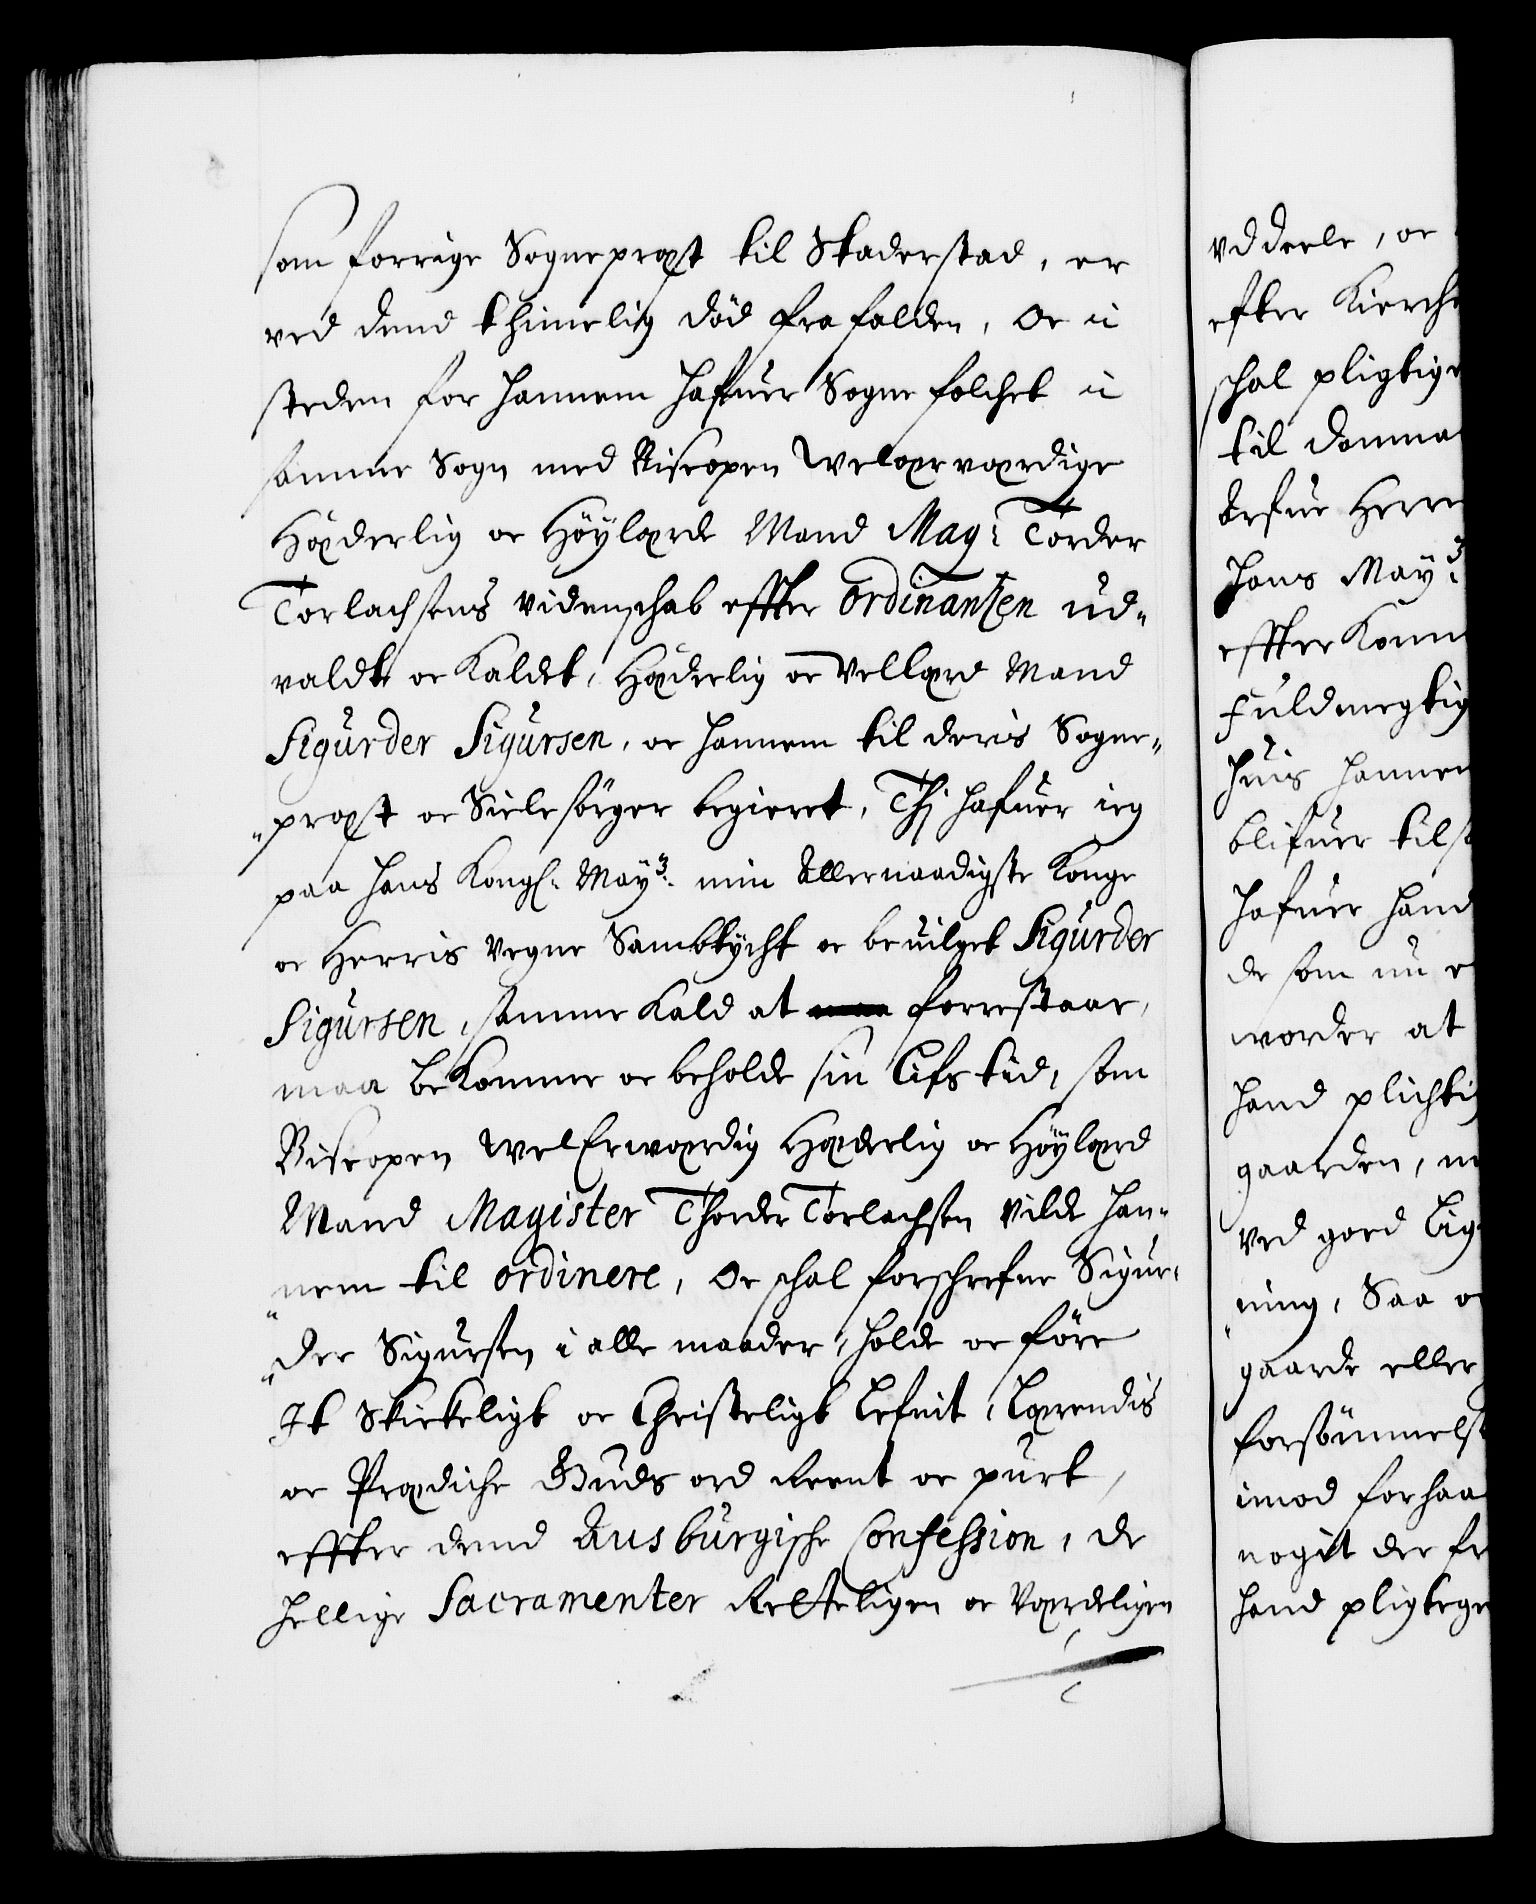 som forrige Sognepræst til Staderstad, er
ved dend thimelig död fra falden, oc ii
steden for hannem hafuer Sogne folchet ii
samme Sogn med Biscopen Welærværdige
Hæderlig oc Höylærde Mand Mag: Torder
Torlachsens videnschab effter ordinantzen ud„
valdt oc Kaldet, Hæderlig oc Vellærd Mand
Sigurder Sigursen, oc hannem til deris Sogne„
„præst oc Sielesörger begieret, Thj hafuer ieg
paa hans Kongl: May:ts min Allernaadigste Konge
oc Herris vegne Sambtÿcht oc beuilget Sigurder
Sigursen, samme Kald at maa forrestaar,
maa beKomme oc beholde sin Lifs tid, som
Biscopen WelErwærdig Hæderlig oc Höylærd
Mand Magister Thorder Torlachsen vilde han„
„nem til ordinere, Oc schal forschrefne Sigur„
„der Sigursen i alle maader, holde oc före
Jt Skickeligt oc Christeligt Lefnit, Lærendis
oc Prædiche Guds ord Reent oc purt,
effter dend Ausburgische Confession, de
hellige Sacramenter Retteligen oc Værdeligen
vddeele, oc
efter Kierche
schal pligtige
til domme
Arfue Herre
hans May:ts
effterKomme
Fuldmegtig
huis hannem
blifuer tils
hafuer hand
de som nu e
worder at
hand plichti
gaarden, m
ved goed Lig
„ning, Saa o
gaarde eller
forsömmels
imod forhaa
nogit der fr
hand pligtige